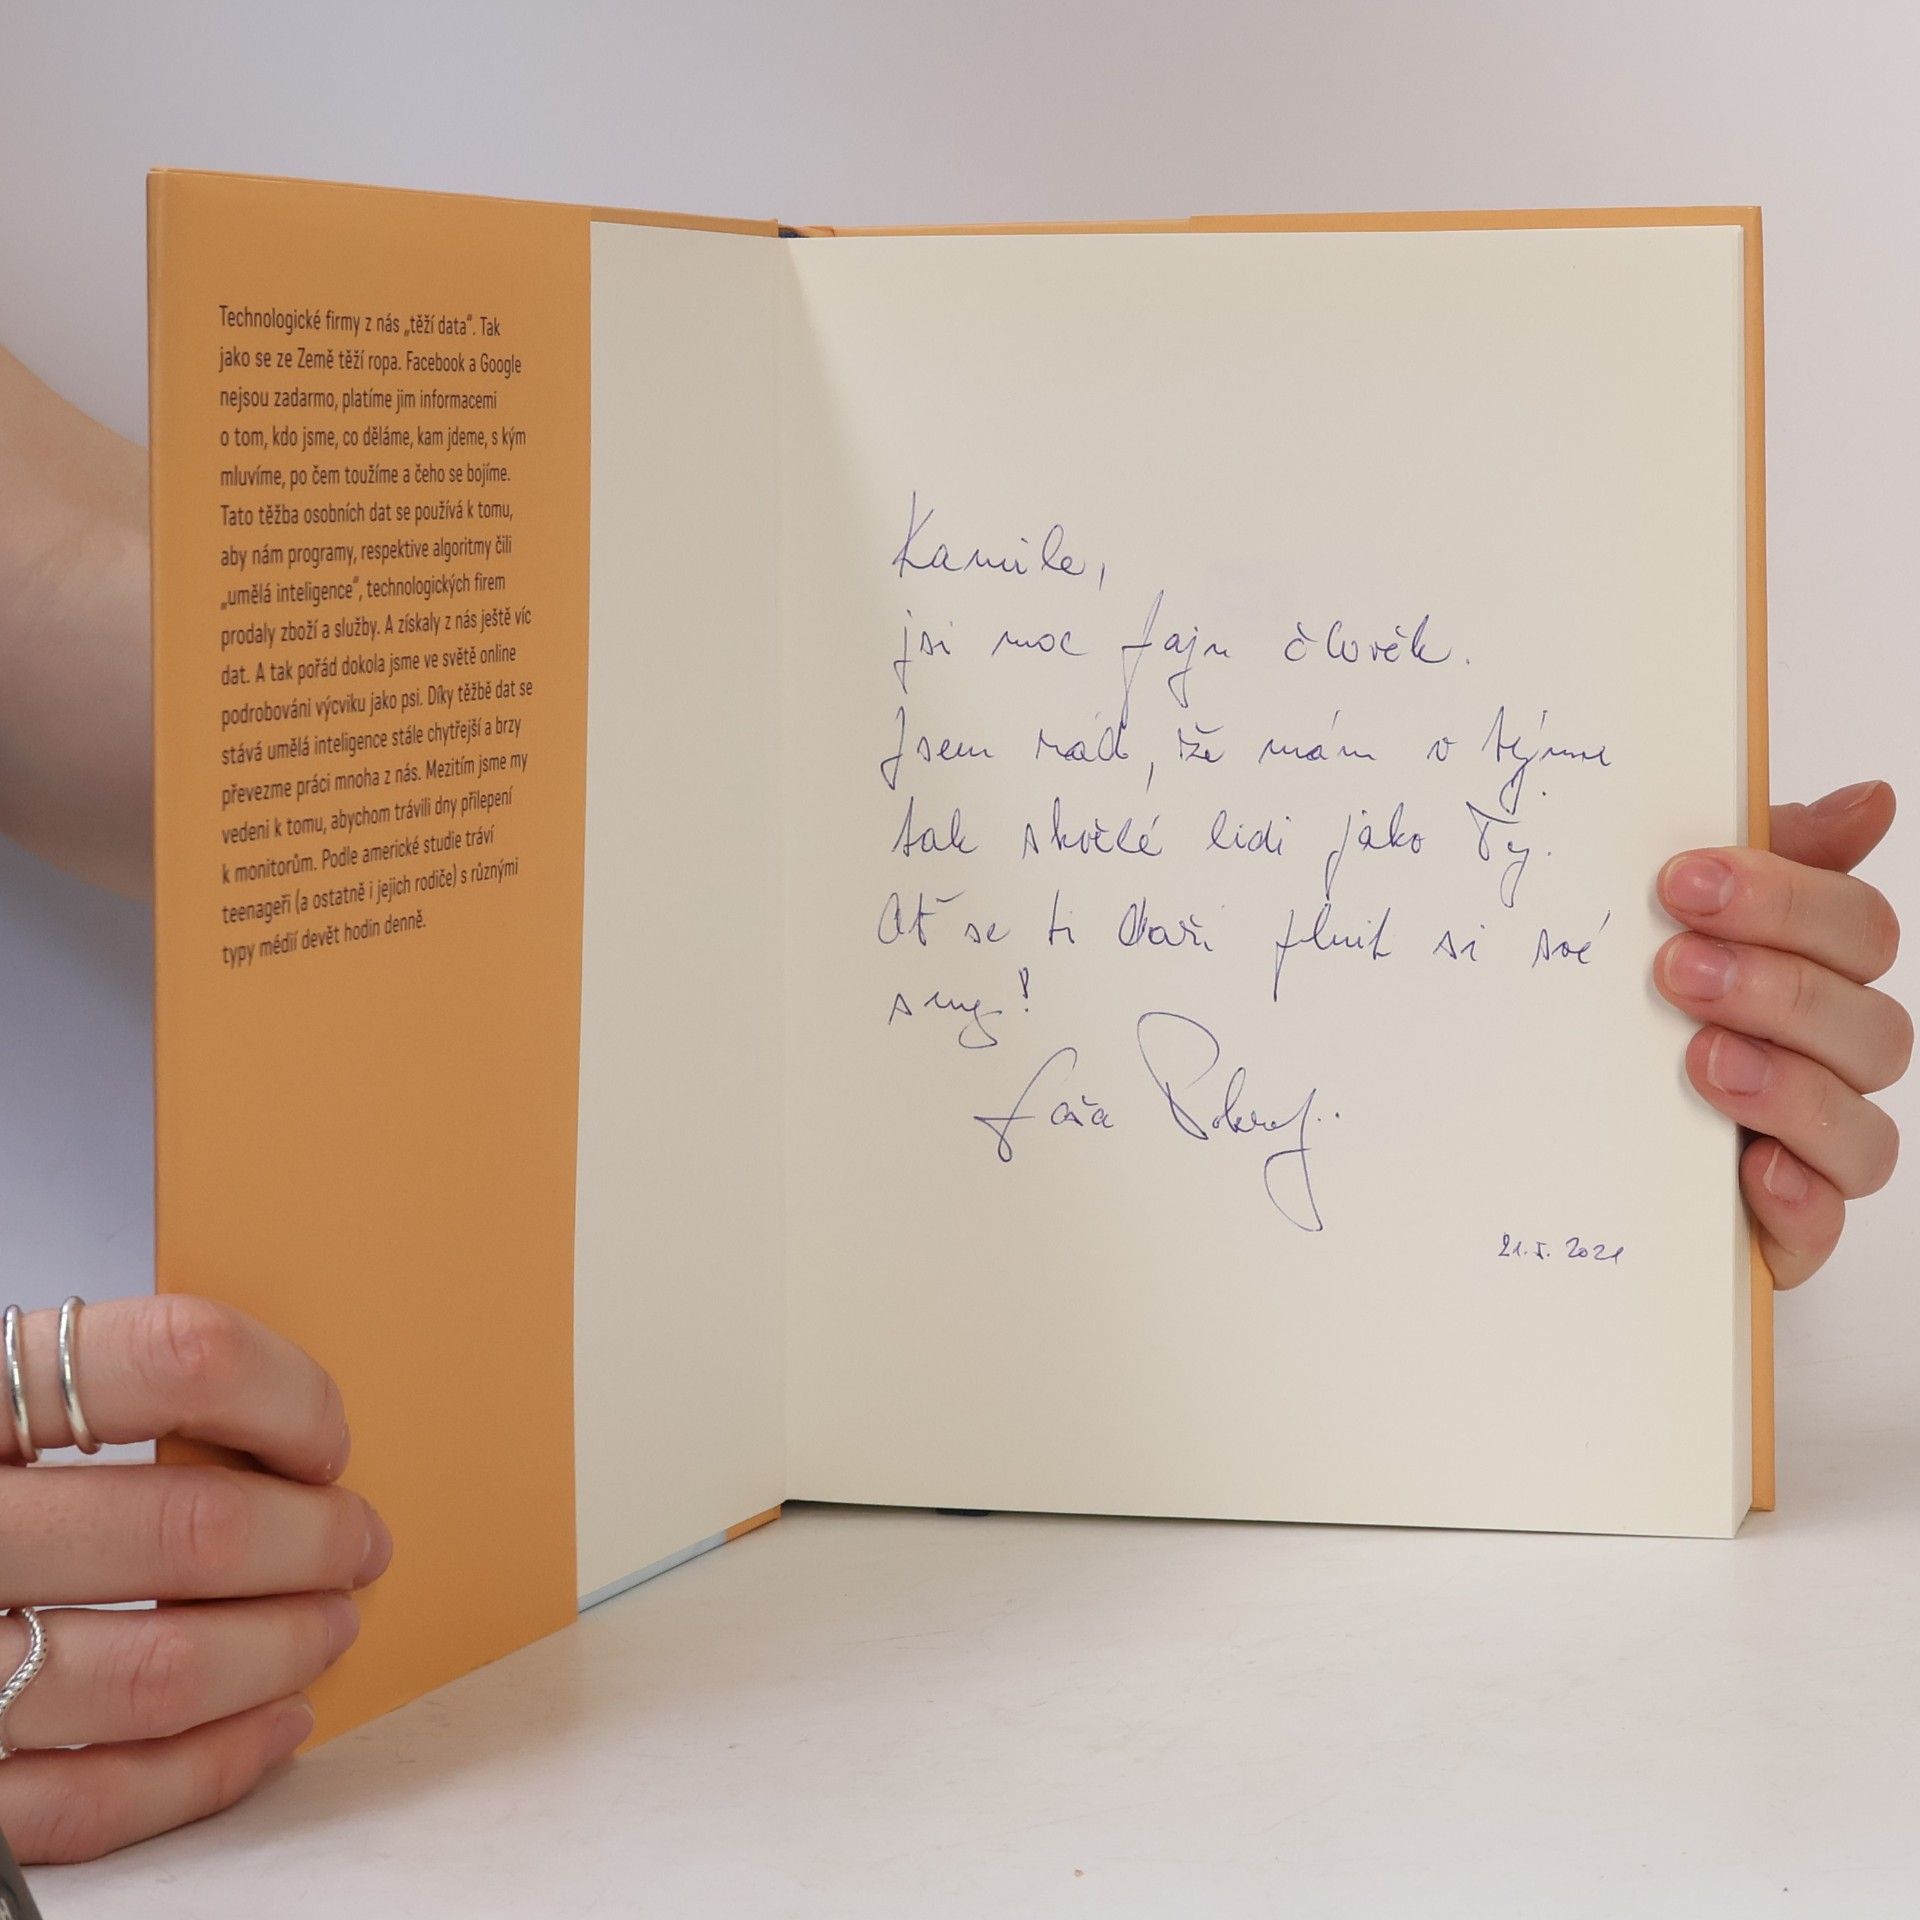 Technologické firmy z nás „těží data“. Tak
jako se ze Země těží ropa. Facebook a Google
nejsou zadarmo, platíme jim informacemi
o tom, kdo jsme, co děláme, kam jdeme, s kým
mluvíme, po čem toužíme a čeho se bojíme.
Tato těžba osobních dat se používá k tomu,
aby nám programy, respektive algoritmy čili
„umělá inteligence“, technologických firem
prodaly zboží a služby. A získaly z nás ještě víc
dat. A tak pořád dokola jsme ve světě online
podrobováni výcviku jako psi. Díky těžbě dat se
stává umělá inteligence stále chytřejší a brzy
převezme práci mnoha z nás. Mezitím jsme my
vedeni k tomu, abychom trávili dny přilepení
k monitorům. Podle americké studie tráví
teenageři (a ostatně i jejich rodiče) s různými
typy médií devět hodin denně.
Kamile,
jsi moc fajn člověk.
Jsem rád, že mám v týmu
tak skvělé lidi jako Ty.
Ať se ti daří plnit si své
sny!
21.5. 2021